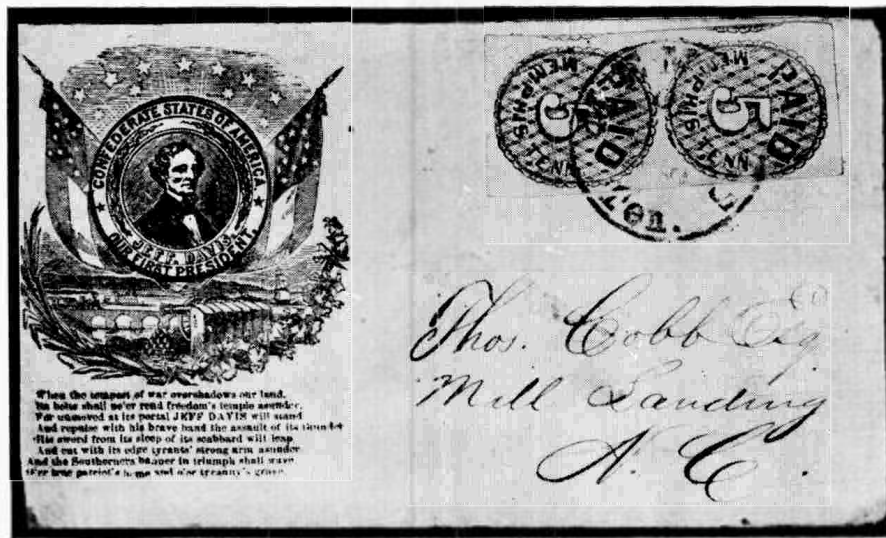 CONFEDERATE STATES OF AMERICA
JEFF. DAVIS.
OUR FIRST PRESIDENT.
When the tempest of war overshadows our land,
Its bolts shall ne'er rend freedom's temple asunder,
For unmoved at its portal JEFF DAVIS will stand
And repulse with his brave band the assault of its thunder
His sword from its sleep of its scabbard will leap
And cut with its edge tyrants' strong arm asunder
And the Southerners banner in triumph shall wave
O'er true patriot's home and o'er tyranny's grave.
PAID
5
MEMPHIS
TENN
PAID
5
MEMPHIS
TENN
Thos. Cobb Esq
Mill Landing
N. C.